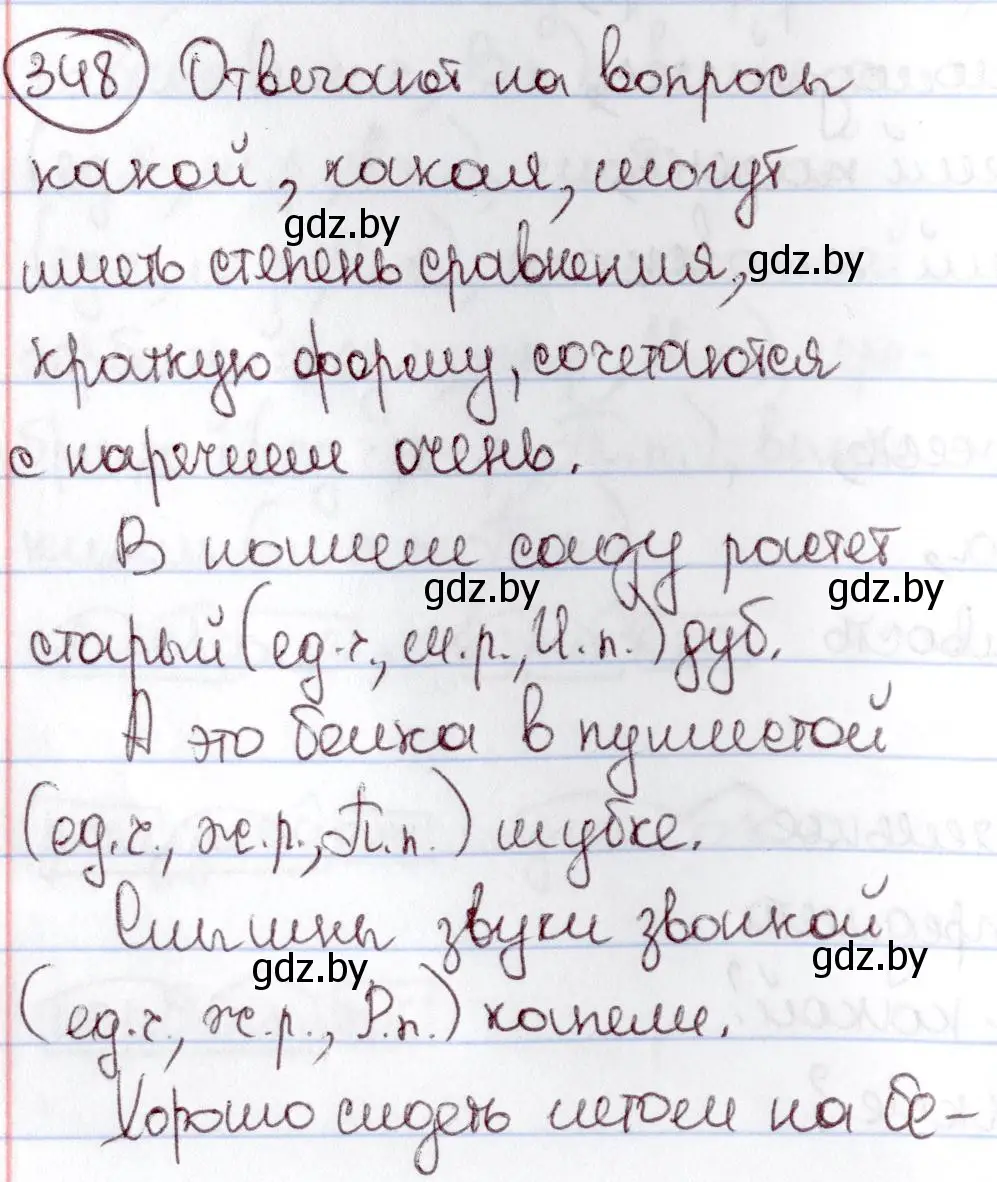 348 Отвечают на вопросы
какой, какая, могут
gdz.by
иметь степень сравнения,
gdz.by
краткую форму, сочетаются
с наречием очень.
В нашем саду растет
gdz.by
gdz.by
старый (ед.ч., м.р., И.п.) дуб.
А это белка в пушистой
(ед.ч., ж.р., П.п.) шубке.
Слышны звуки звонкой
gdz.by
gdz.by
(ед.ч., ж.р., Р.п.) капели.
Хорошо сидеть летом на бе-